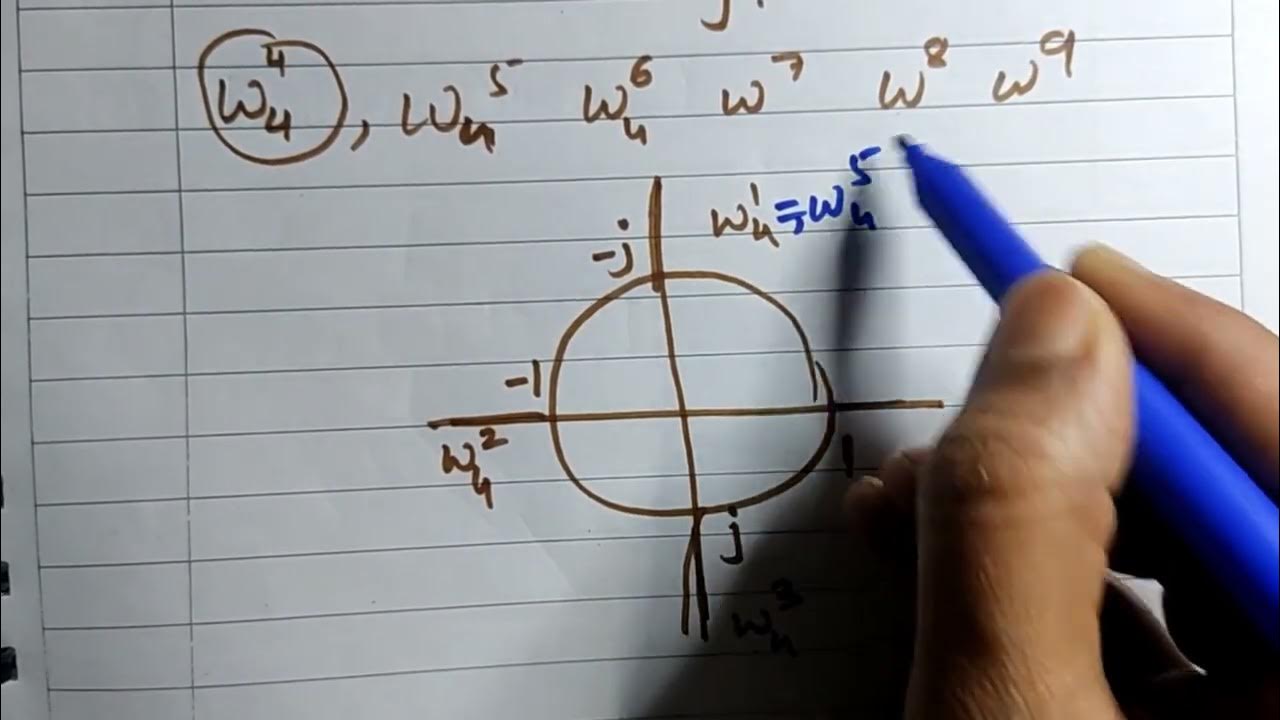 j.
W₄⁴, W₄⁵ W₄⁶ W⁷ W⁸ W⁹
W₄¹ = W₄⁵
-j
-1
W₄²
1
j
W₄³